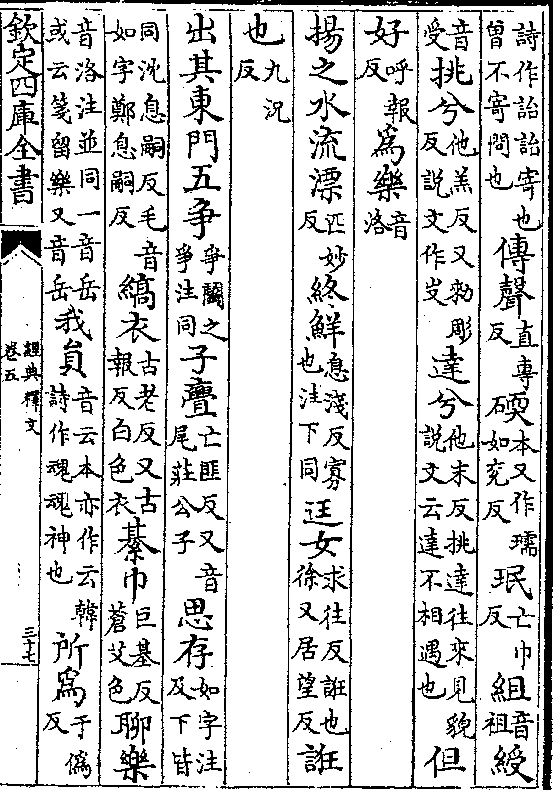 詩作詒詒寄也曾不寄問也傳聲直専反碝本又作瓀如兖反珉亡巾反組音祖綬
音受挑兮他羔反又勑彫反説文作㕜達兮他末反挑達往來見貌説文云達不相遇也但
好呼報反爲樂音洛
揚之水流漂匹妙反終鮮息淺反寡也注下同迋女求往反誑也徐又居望反誑
也九況反
出其東門五爭爭鬭之爭注同子亹亡匪反又音尾莊公子思存如字注及下皆
同沈息嗣反毛音如字鄭息嗣反縞衣古老反又古報反白色衣綦巾巨基反蒼艾色聊樂
音洛注並同一音岳或云箋留樂又音岳我員音云本亦作云韓詩作魂魂神也所爲于僞反
欽定四庫全書
經典釋文
卷五
三十七